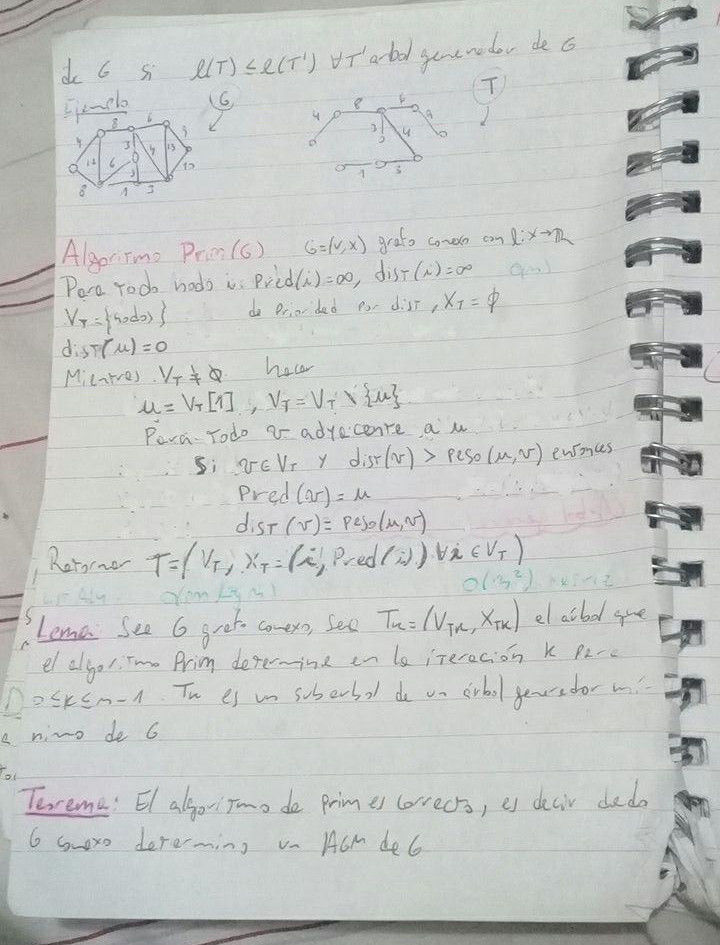 de G si l(T) ≤ l(T') ∀T' arbol generador de G
Ejemplo
G
T
4 8 6 9
12 6 3 4 13
8 1 3 10
4 8 6 9
3 4
1 3
Algoritmo Prim(G) G=(V,X) grafo conexo con l:X→R
Para todo nodo i: Pred(i)=∞, dist(i)=∞
V_T={nodos} de prioridad por dist, X_T = ϕ
dist(u)=0
Mientras V_T ≠ ϕ hacer
u = V_T[1], V_T = V_T \ {u}
Para todo v adyacente a u
Si v∈V_T y dist(v) > peso(u,v) entonces
Pred(v) = u
dist(v) = peso(u,v)
Retornar T=(V_T, X_T=(i, Pred(i)) ∀i ∈ V_T)
Lema: Sea G grafo conexo, sea T_k=(V_Tk, X_Tk) el arbol que
el algoritmo Prim determina en la iteración k para
0≤k≤n-1. T_k es un subarbol de un árbol generador mi-
nimo de G
Teorema: El algoritmo de prim es correcto, es decir dado
G conexo determina un AGM de G